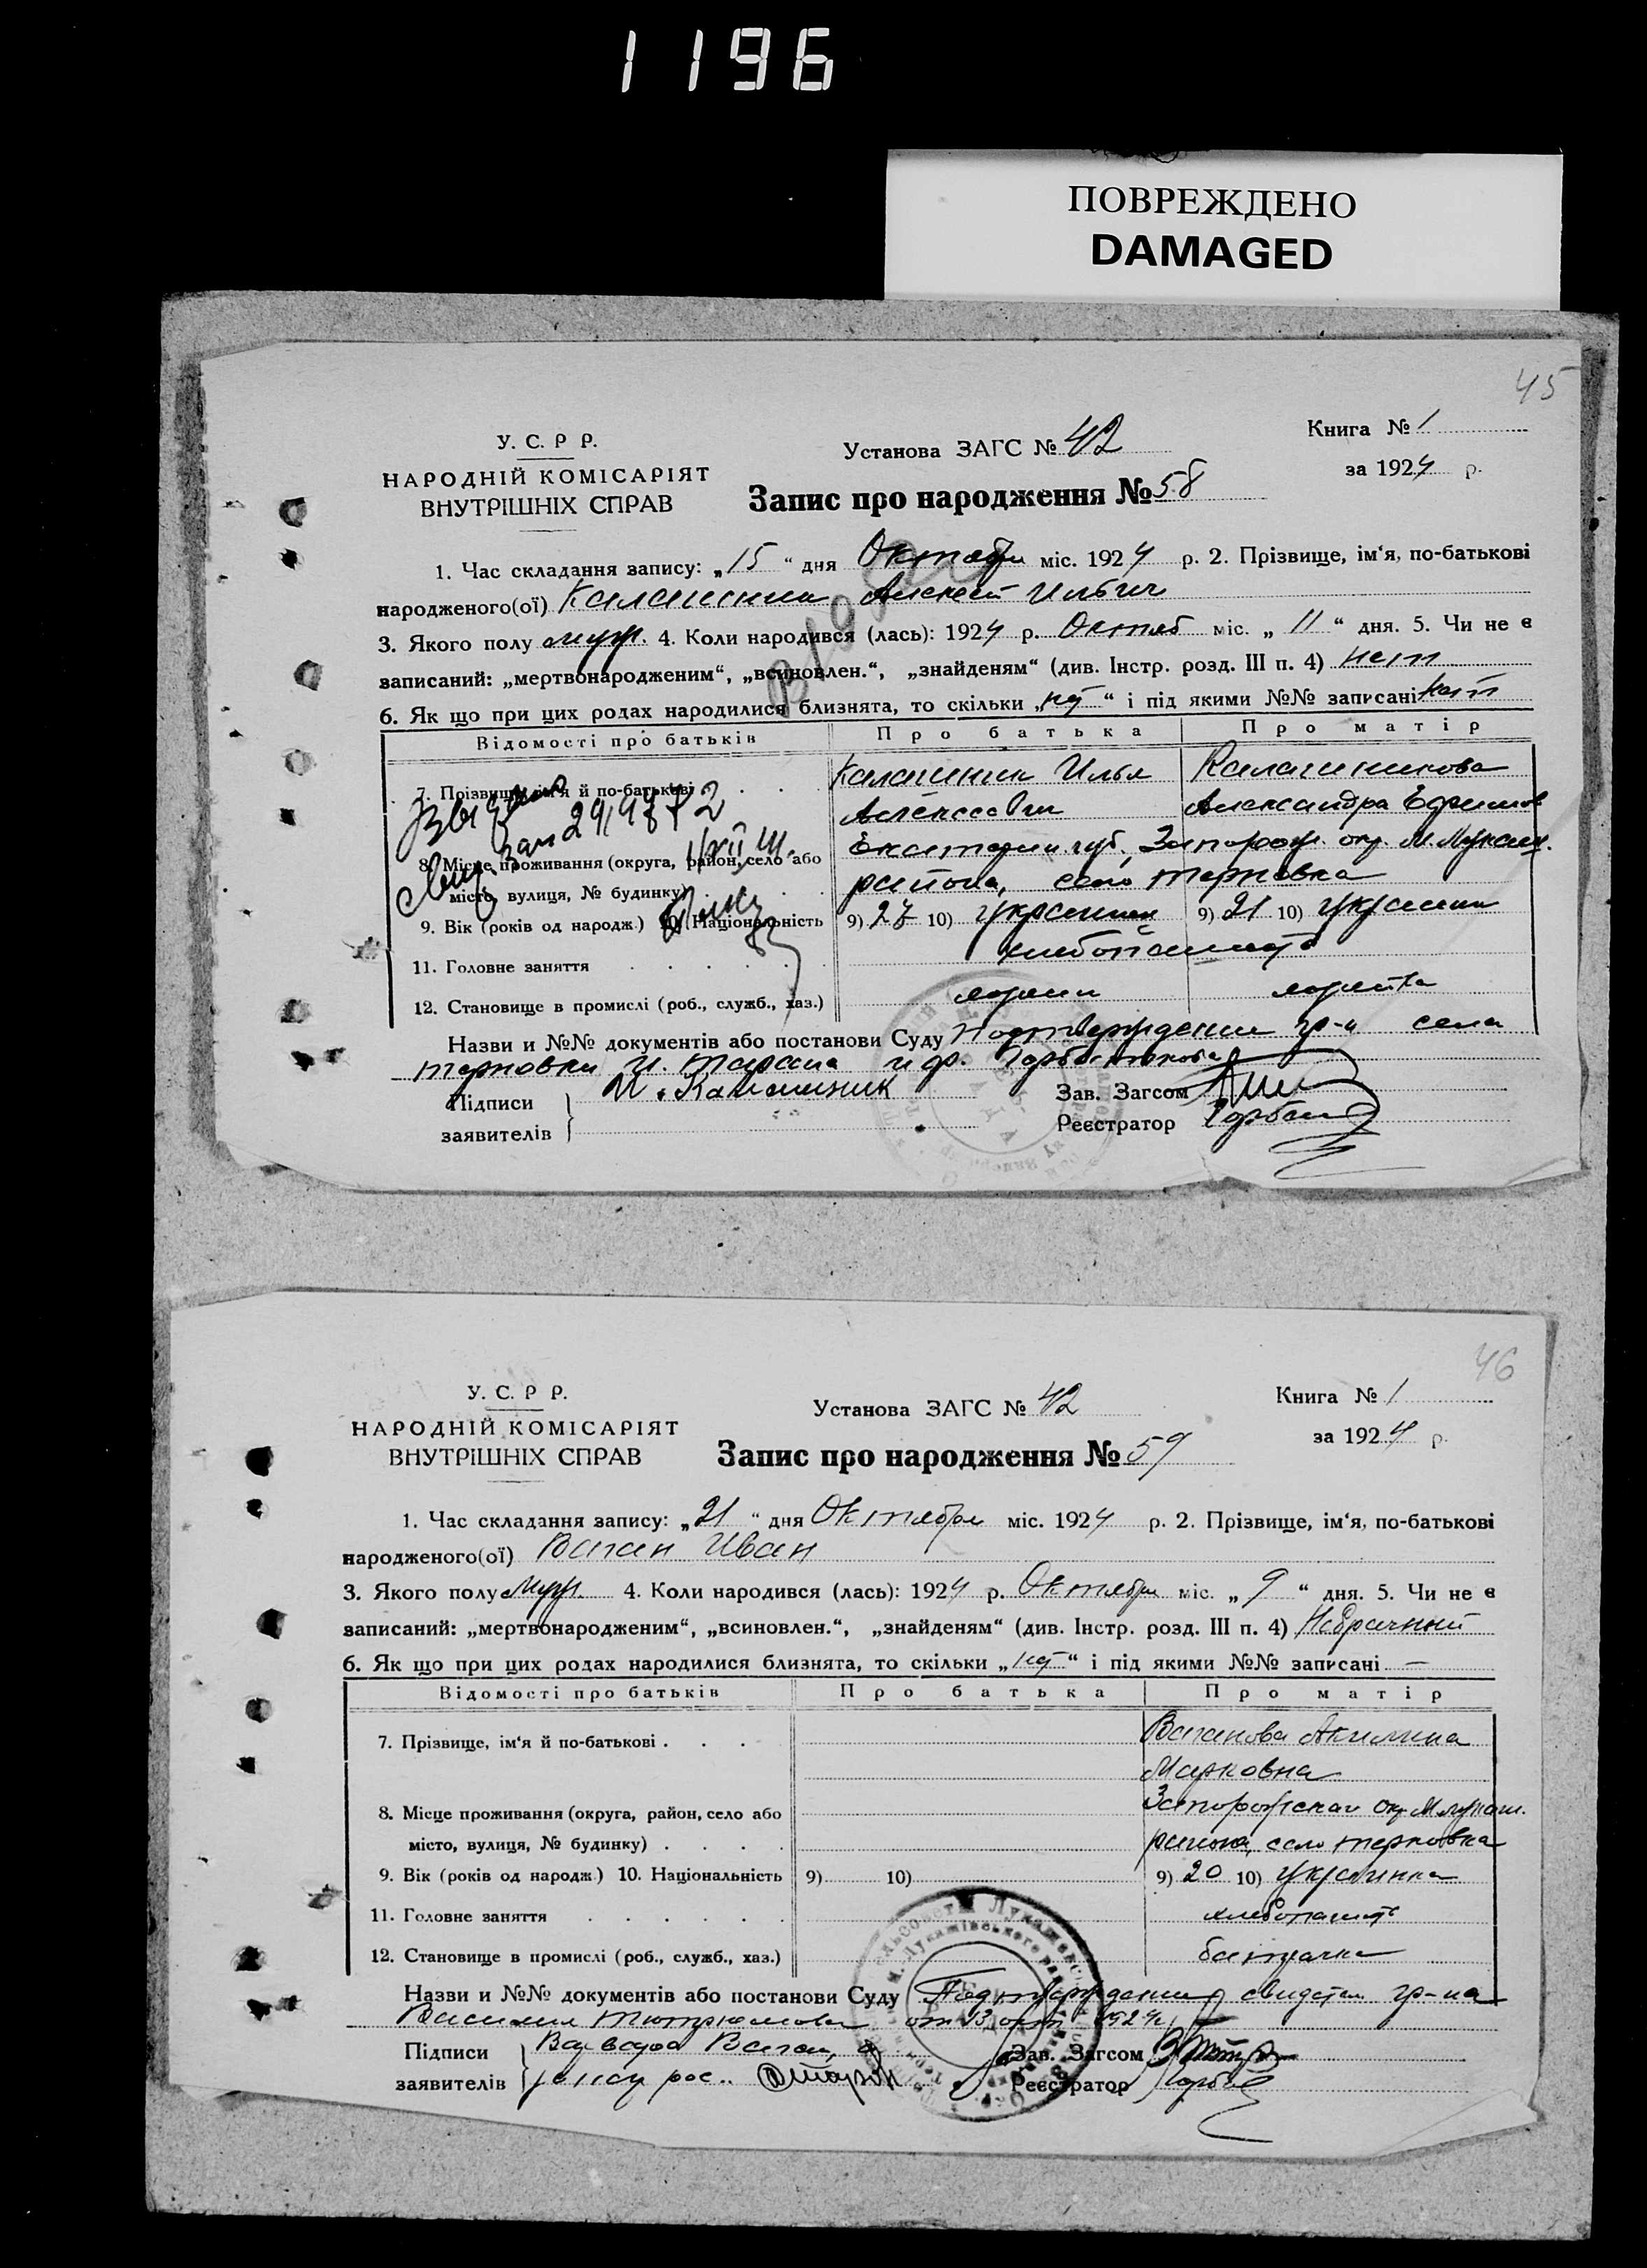 1196
ПОВРЕЖДЕНО
DAMAGED
45
У. С. Р Р.
НАРОДНІЙ КОМІСАРІЯТ
ВНУТРІШНІХ СПРАВ
Установа ЗАГС № 42
Запис про народження № 58
Книга № 1
за 1924 р.
1. Час складання запису: „15“ дня Октября міс. 1924 р. 2. Прізвище, ім‘я, по-батькові
народженого(ої) Калашник Алексей Ильич
3. Якого полу муж. 4. Коли народився (лась): 1924 р. Октяб міс. „11“ дня. 5. Чи не є
записаний: „мертвонародженим“, „всиновлен.“, „знайденям“ (див. Інстр. розд. III п. 4) нет
6. Як що при цих родах народилися близнята, то скільки „нет“ і під якими №№ записані нет
Відомості про батьків Про батька Про матір
7. Прізвище, ім‘я й по-батькові Калашник Илья Калашникова
Алексеевич Александра Ефимов
8. Місце проживання (округа, район, село або Екатерин. губ., Запорож. окр. М. Лукаш.
місто, вулиця, № будинку) района, село Терновка
9. Вік (років од народж.) 10. Національність 9) 27 10) Украинец 9) 21 10) Украин
11. Головне заняття хлебопашество
12. Становище в промислі (роб., служб., хаз.)
Назви и №№ документів або постанови Суду Подтверждение гр-н села
Терновки И. Тарана и Ф.
Підписи И. Калашник Зав. Загсом
заявителів Реєстратор
46
У. С. Р Р.
НАРОДНІЙ КОМІСАРІЯТ
ВНУТРІШНІХ СПРАВ
Установа ЗАГС № 42
Запис про народження № 59
Книга № 1
за 1924 р.
1. Час складання запису: „21“ дня Октября міс. 1924 р. 2. Прізвище, ім‘я, по-батькові
народженого(ої) Ваган Иван
3. Якого полу Муж. 4. Коли народився (лась): 1924 р. Октября міс. „9“ дня. 5. Чи не є
записаний: „мертвонародженим“, „всиновлен.“, „знайденям“ (див. Інстр. розд. III п. 4) Небрачный
6. Як що при цих родах народилися близнята, то скільки „нет“ і під якими №№ записані —
Відомості про батьків Про батька Про матір
7. Прізвище, ім‘я й по-батькові Ваганова Акилина
Марковна
8. Місце проживання (округа, район, село або Запорожская окр. М. Лукаш.
місто, вулиця, № будинку) района, село Терновка
9. Вік (років од народж.) 10. Національність 9) 10) 9) 20 10) Украинка
11. Головне заняття хлебопашество
12. Становище в промислі (роб., служб., хаз.) батрачка
Назви и №№ документів або постанови Суду Подтверждение свидетел гр-на
Василия от 13 окт 1924
Підписи Варвара Ваган, а Зав. Загсом
заявителів Реєстратор